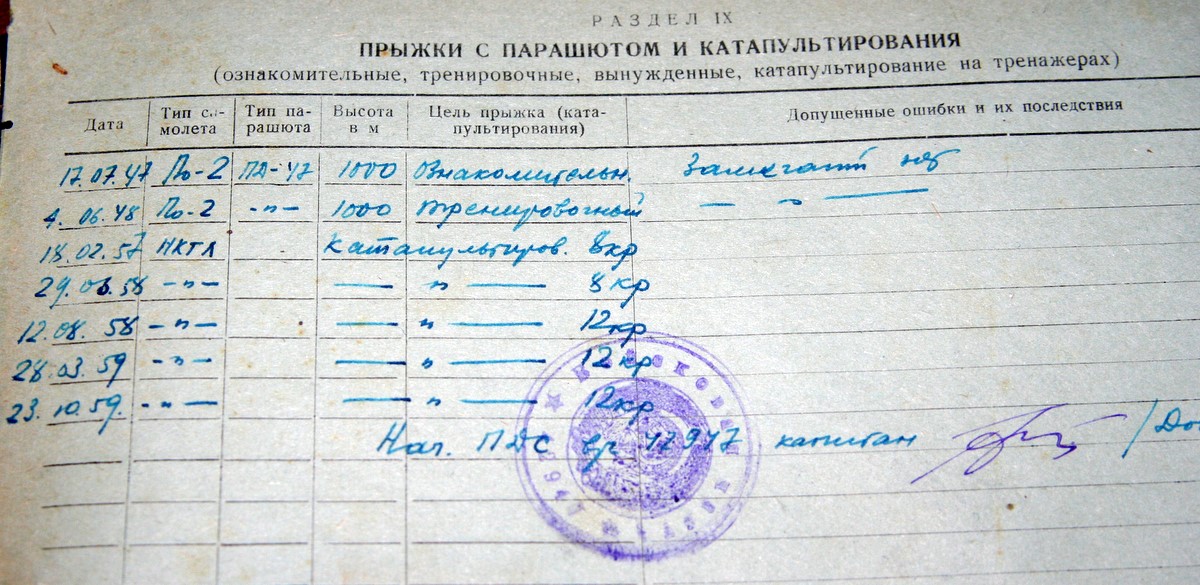 РАЗДЕЛ IX
ПРЫЖКИ С ПАРАШЮТОМ И КАТАПУЛЬТИРОВАНИЯ
(ознакомительные, тренировочные, вынужденные, катапультирование на тренажерах)
Дата Тип са-молета Тип па-рашюта Высота в м Цель прыжка (ката-пультирования) Допущенные ошибки и их последствия
17.07.47 По-2 ПД-47 1000 Ознакомительн. Замечаний нет
4.06.48 По-2 -"- 1000 тренировочный — " —
18.02.57 НКТЛ Катапультиров. 8кр
29.03.58 -"- — " — 8кр
12.08.58 -"- — " — 12кр
28.03.59 -"- — " — 12кр
23.10.59. -"- — " — 12кр.
Нач. ПДС капитан